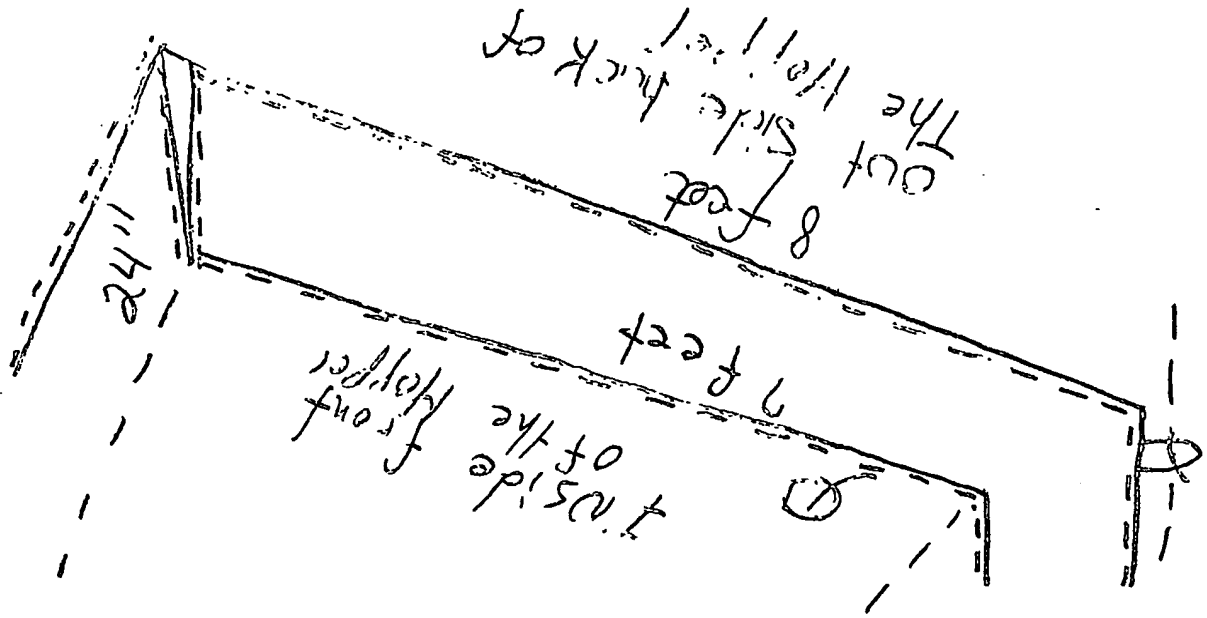 inside front
of the Hopper
7 feet
24"
8 feet
out Side back of
The Hopper